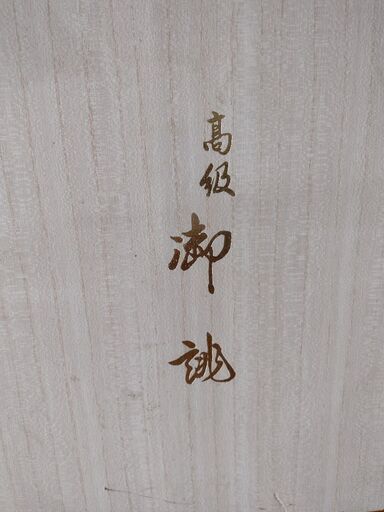 高級御誂